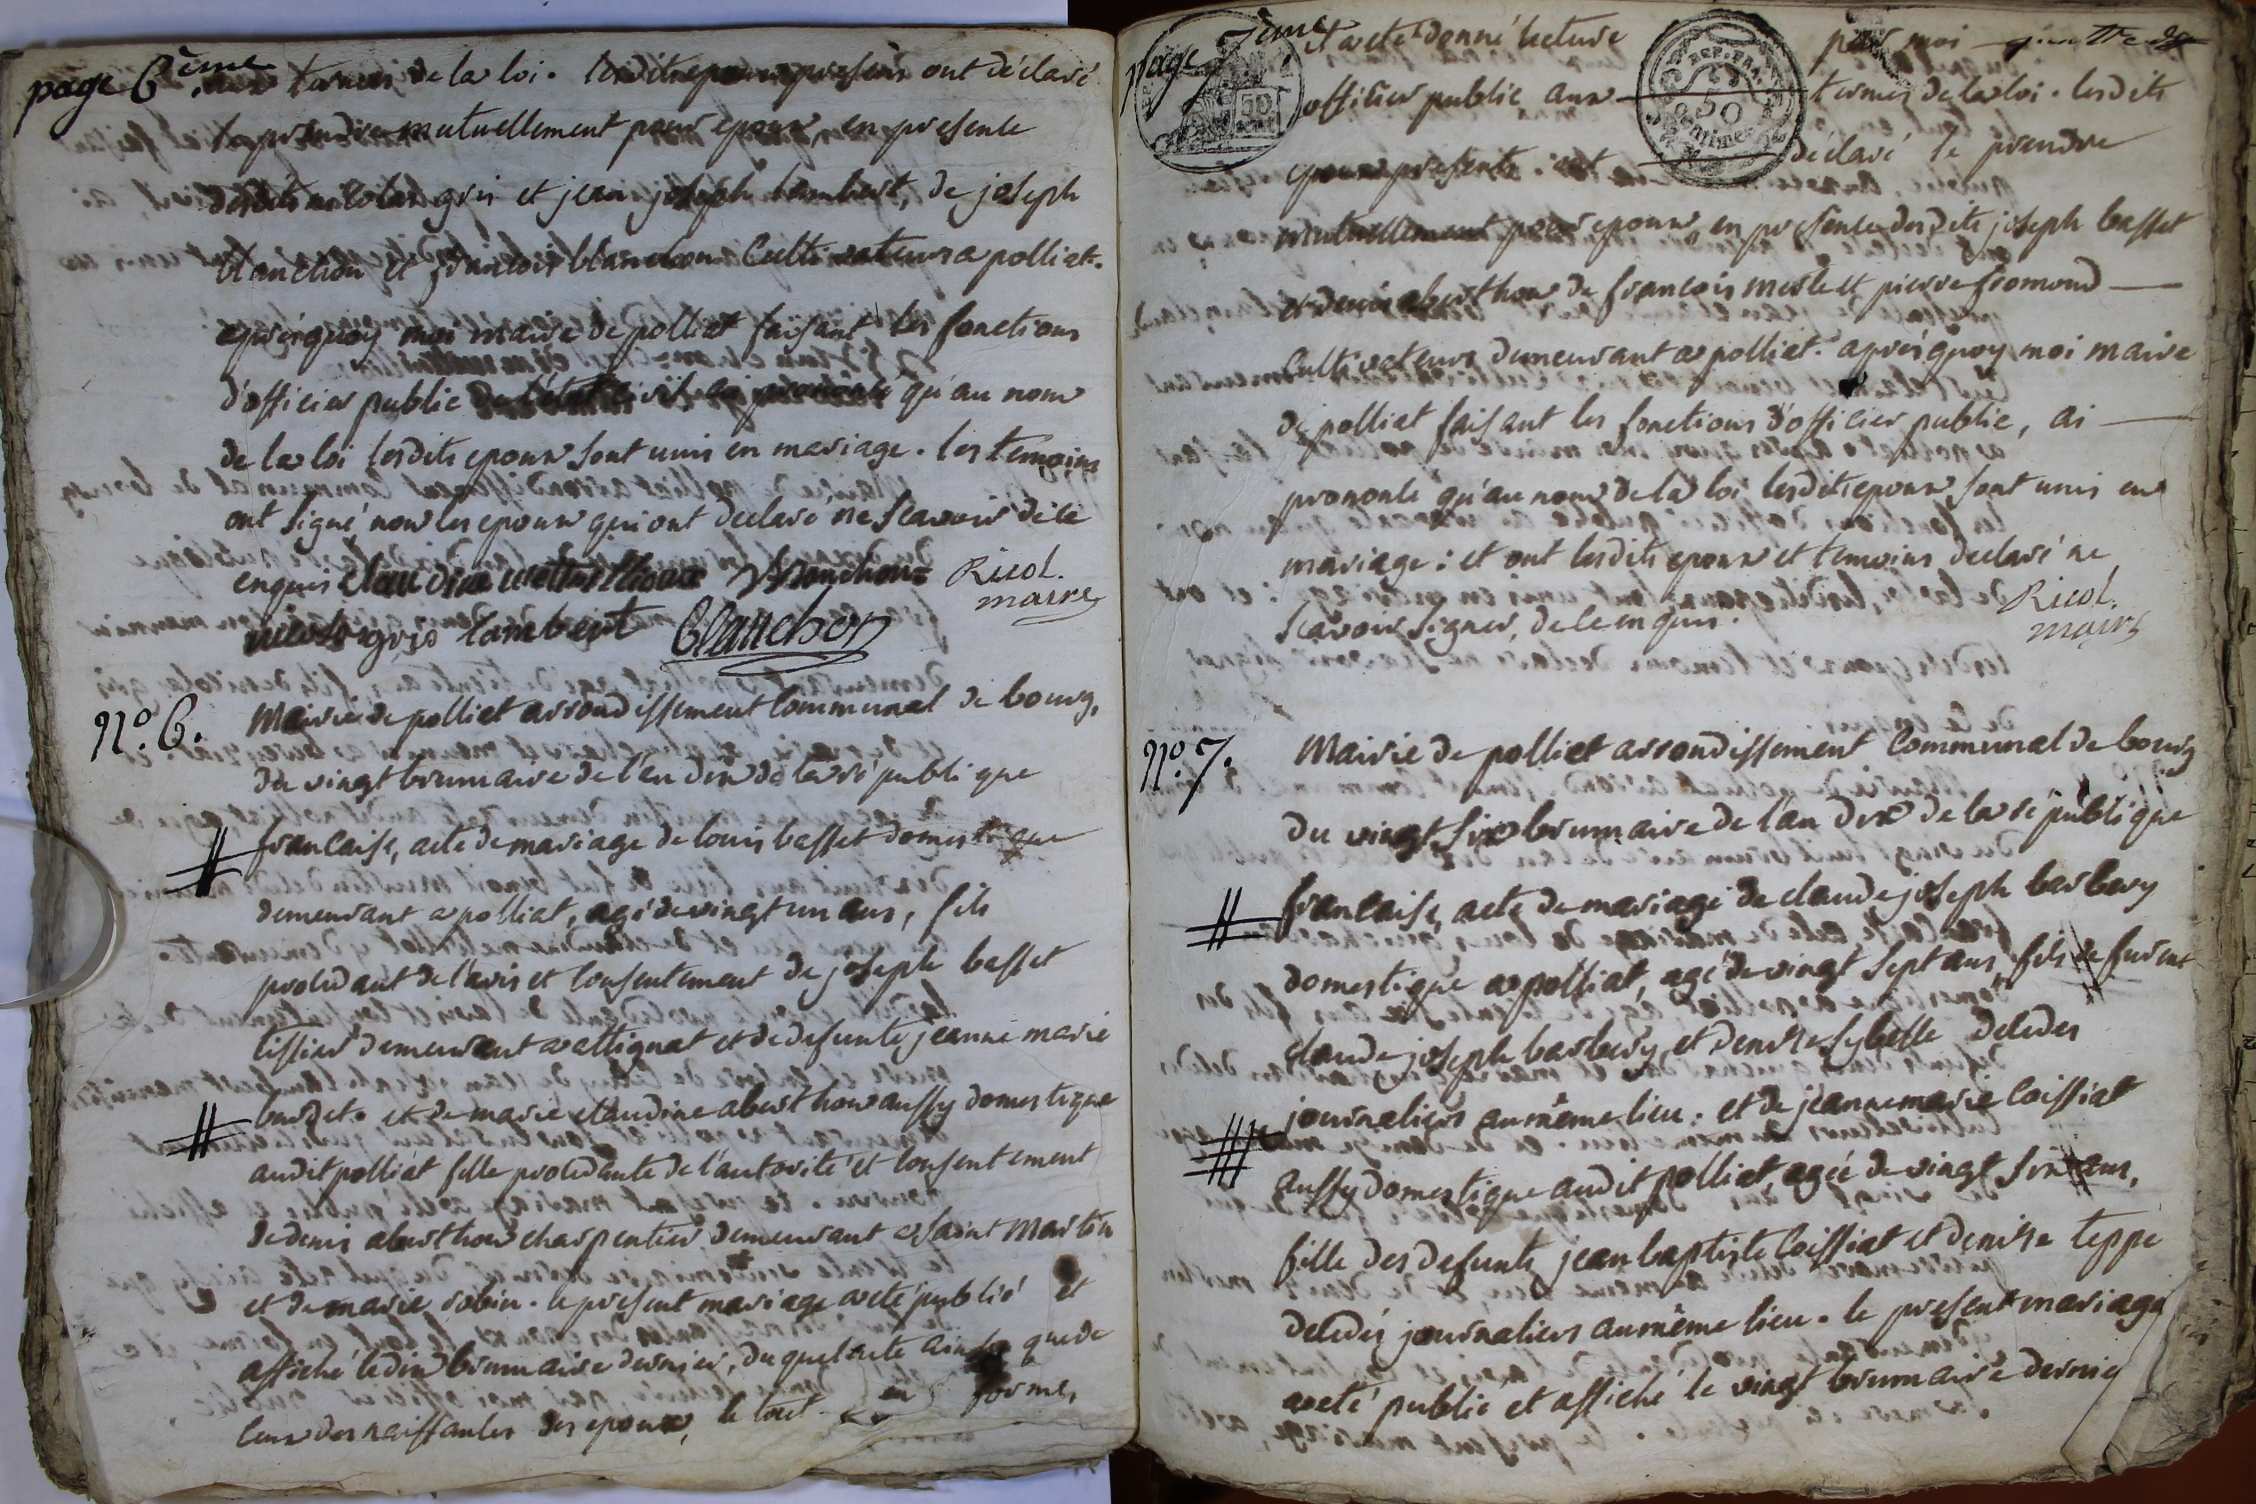 page 6ème
aux termes de la loi. lesdits epoux presens ont déclaré
se prendre mutuellement pour epoux, en presence
desdits nicolas gris et jean joseph lambert, de joseph
blanchon et francois blanchon cultivateurs a polliat.
aprèsquoy moi maire de polliat faisant les fonctions
d'officier public de l'état civil ai prononcé qu'au nom
de la loi lesdits epoux sont unis en mariage. les temoins
ont signé non les epoux qui ont declaré ne scavoir de ce
enquis
Blanchon
Ricol.
maire
nicolas gris lambert Blanchon
No. 6.
Mairie de polliat arrondissement communal de bourg,
du vingt brumaire de l'an dix de la république
francaise, acte de mariage de louis basset domestique
demeurant a polliat, agé de vingt un ans, fils
procédant de l'avis et consentement de joseph basset
tissier demeurant a attignat et de defunte jeanne marie
burdet. et de marie claudine aberthou aussy domestique
audit polliat fille procédante de l'autorité et consentement
de denis aberthou charpentier demeurant a saint Martin
et de marie robin. le present mariage a eté publié et
affiché le dix brumaire dernier, duquel acte ainsy que de
ceux des naissances des epoux, le tout en forme,
page 7ème
il a eté donné lecture par moi
officier public aux termes de la loi. lesdits
epoux presents. ont déclaré se prendre
mutuellement pour epoux, en presence desdits joseph basset
et denis aberthou de francois merle et pierre fromond
cultivateurs demeurant a polliat. aprèsquoy moi maire
de polliat faisant les fonctions d'officier public, ai
prononcé qu'au nom de la loi lesdits epoux sont unis en
mariage: et ont lesdits epoux et temoins declaré ne
scavoir signer, de ce enquis.
Ricol.
maire
No. 7.
Mairie de polliat arrondissement communal de bourg
du vingt six brumaire de l'an dix de la république
francaise, acte de mariage de claude joseph barbery
domestique a polliat, agé de vingt sept ans, fils de furent
claude joseph barbery et denise sybelle décédés
journaliers au même lieu. et de jeanne marie loissiat
aussy domestique audit polliat, agée de vingt six ans,
fille des defunts jean baptiste loissiat et denise teppe
décédés journaliers au même lieu. le present mariage
a eté publié et affiché le vingt brumaire dernier
REP. FRA.
50
centimes
50